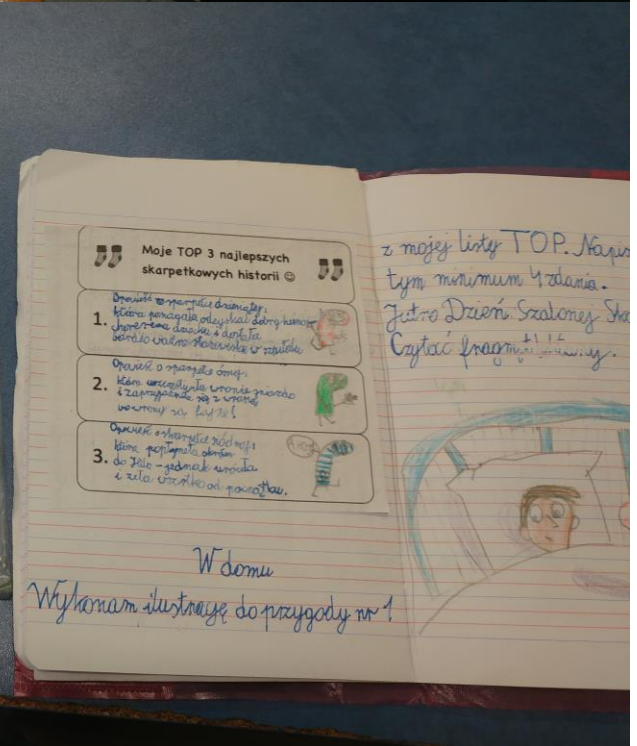 Moje TOP 3 najlepszych
skarpetkowych historii ☺
1. Opowieść o skarpetce dziesiątej:
która pomagała odzyskać dobry humor
dziecku i dostała
bardzo ważne stanowisko w szpitalu
2. Opowieść o skarpetce ósmej:
która wronie gniazdo
i zaprzyjaźnia się z wroną
3. Opowieść o skarpetce
która popłynęła
do jednak wróciła
i od początku.
W domu
Wykonam ilustrację do przygody nr 1
z mojej listy TOP. Napis
tym minimum 4 zdania.
Jutro Dzień Szalonej Ska
Czytać